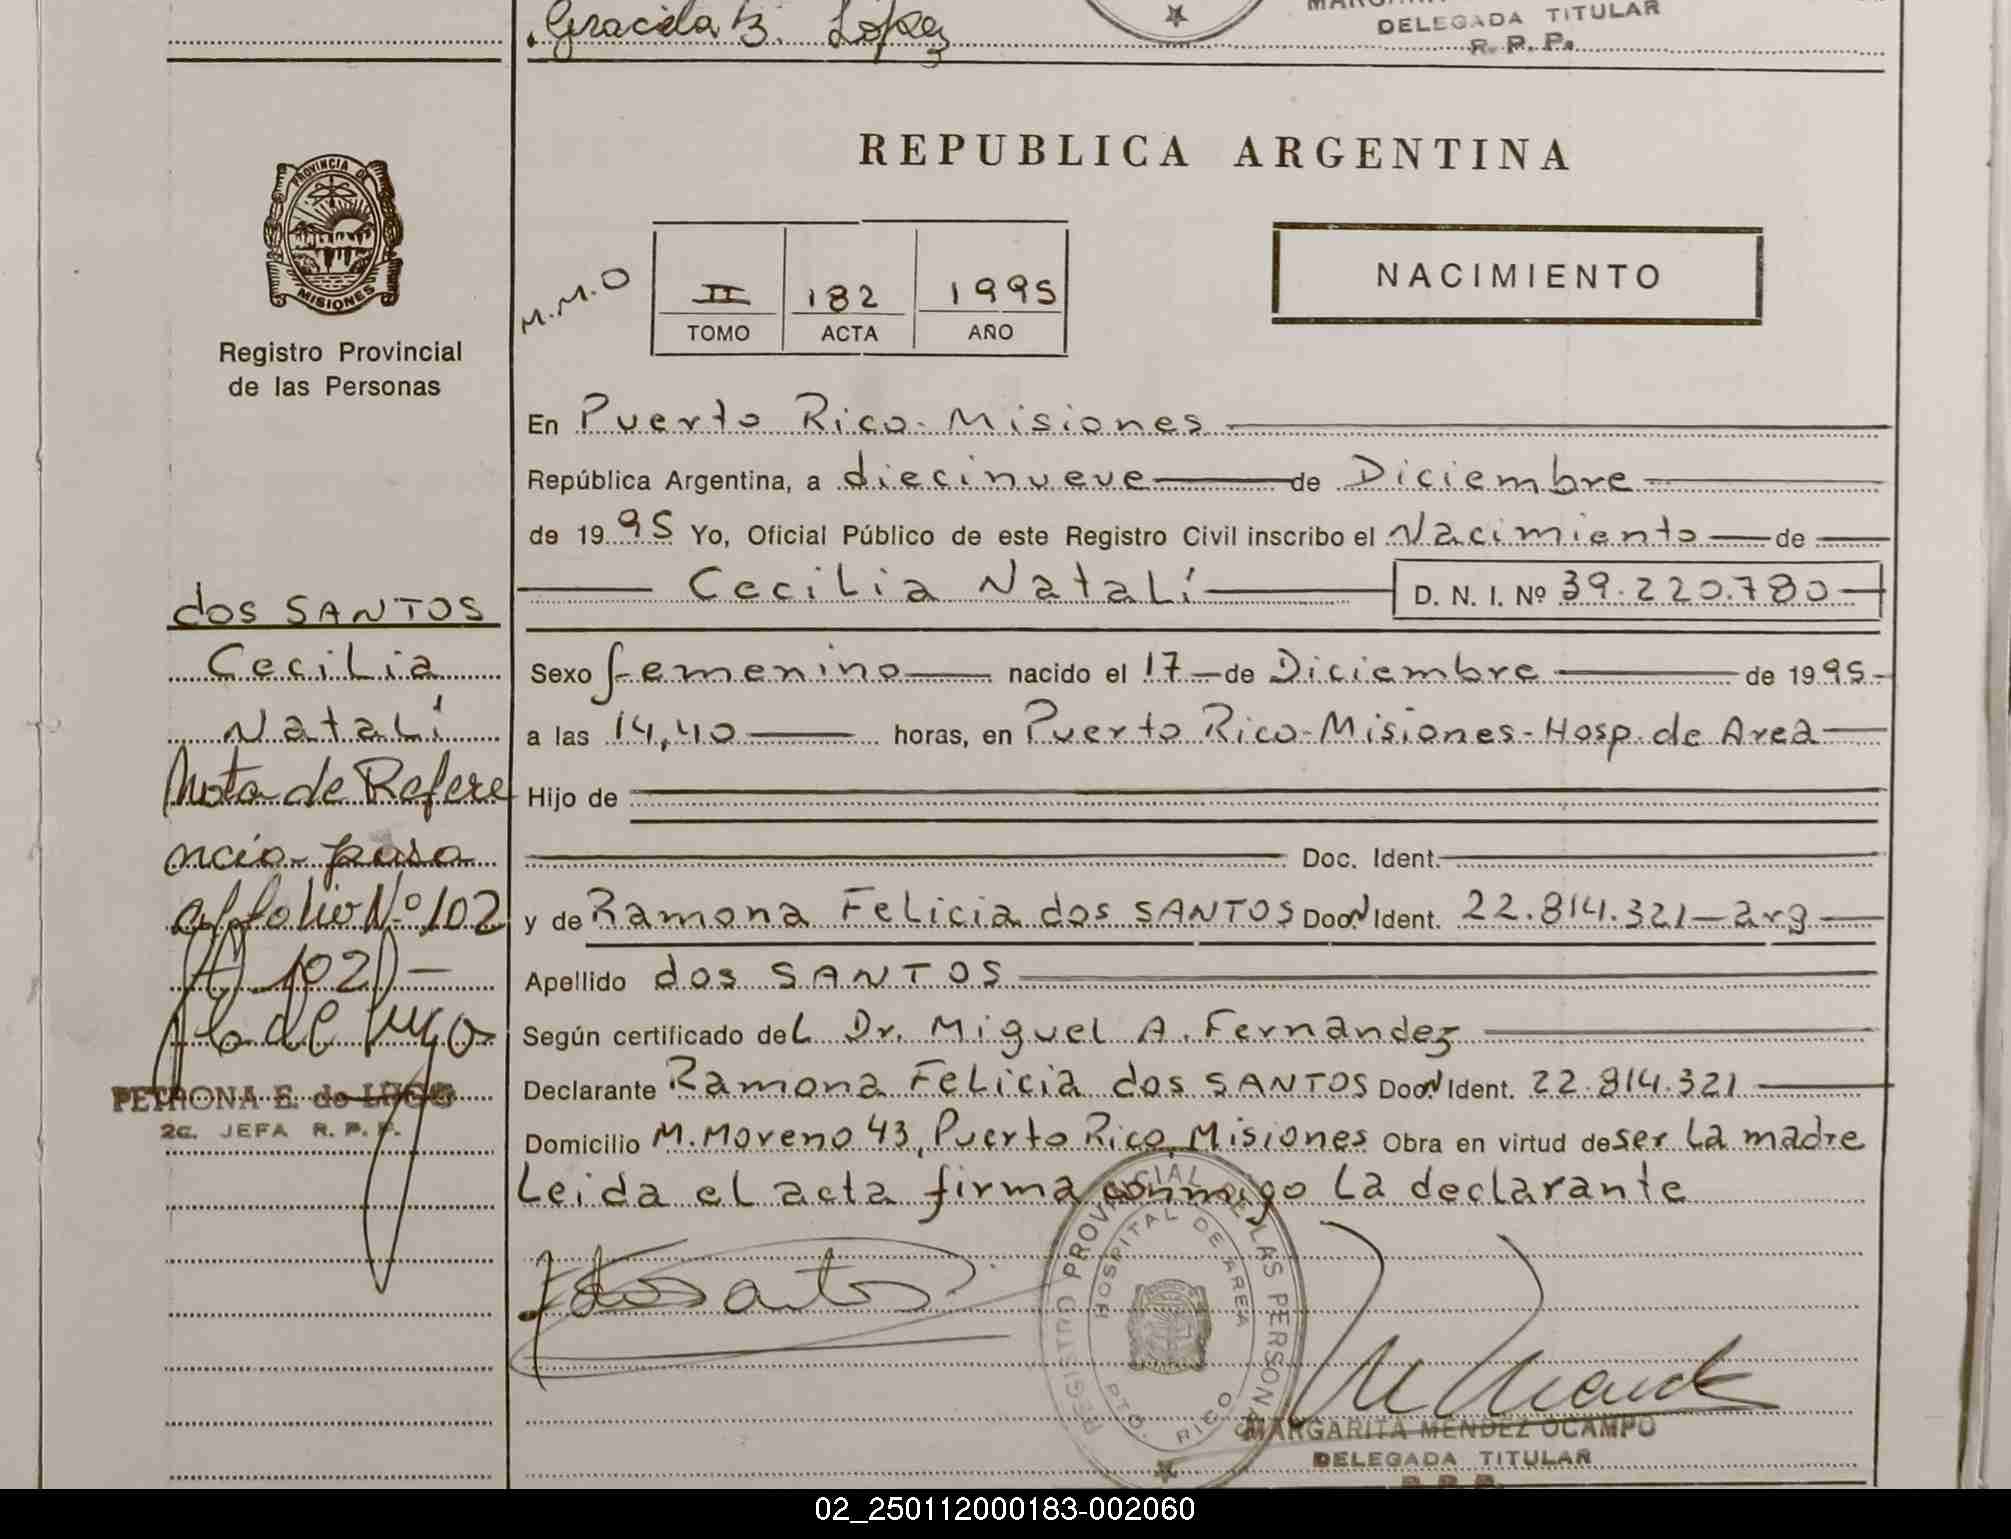 Graciela B. López
DELEGADA TITULAR
R. P. P.
PROVINCIA DE
MISIONES
Registro Provincial
de las Personas
REPUBLICA ARGENTINA
M.M.O
II 182 1995
TOMO ACTA AÑO
NACIMIENTO
En Puerto Rico - Misiones
República Argentina, a diecinueve de Diciembre
de 1995 Yo, Oficial Público de este Registro Civil inscribo el Nacimiento de
Cecilia Natalí D. N. I. Nº 39.220.780
Sexo femenino nacido el 17 de Diciembre de 1995
a las 14,40 horas, en Puerto Rico-Misiones-Hosp. de Area
Hijo de
Doc. Ident.
y de Ramona Felicia dos SANTOS Doc. Ident. 22.814.321 - arg
Apellido dos SANTOS
Según certificado del Dr. Miguel A. Fernandez
Declarante Ramona Felicia dos SANTOS Doc. Ident. 22.814.321
Domicilio M. Moreno 43, Puerto Rico, Misiones Obra en virtud de ser la madre
Leida el acta firma conmigo la declarante
dos SANTOS
Cecilia
Natalí
Nota de Refere
ncia pasa
al folio Nº 102
(102)
PETRONA E. de LUGO
2a. JEFA R. P. P.
REGISTRO PROVINCIAL DE LAS PERSONAS
HOSPITAL DE AREA
PTO. RICO
MARGARITA MENDEZ OCAMPO
DELEGADA TITULAR
R. P. P.
02_250112000183-002060